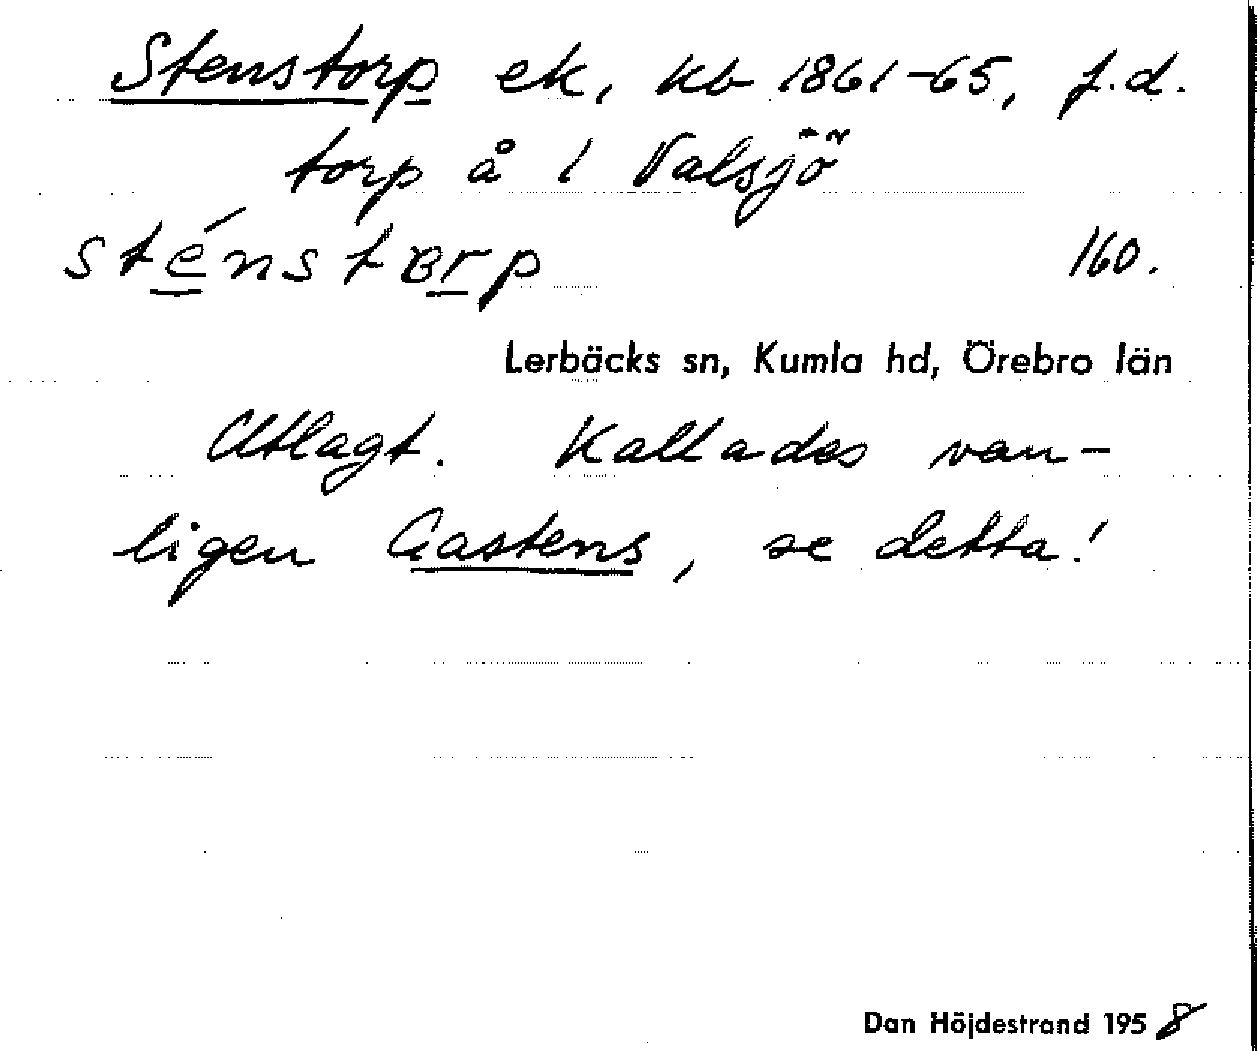 Stenstorp ek, kb 1861-65, f.d.
torp å 1 Valsjö
sténstɞrp 160.
Lerbäcks sn, Kumla hd, Örebro län
Utlagt. Kallades van-
ligen Gastens, se detta!
Dan Höjdestrand 1958